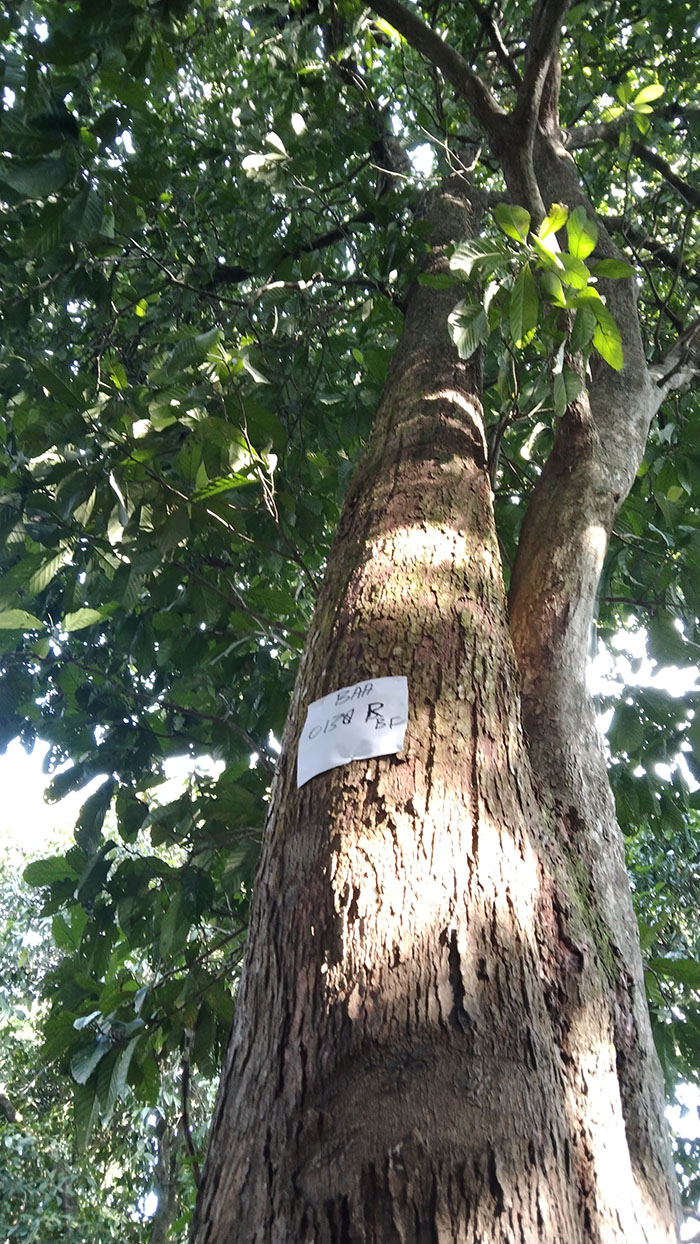 BAA
013 R
BF